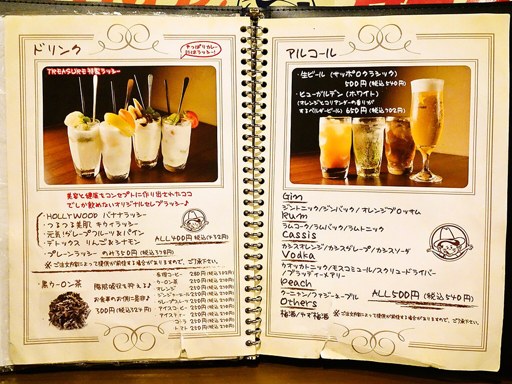 ドリンク
やっぱりカレーにはラッシー!
TREASURE特製ラッシー
美容と健康をコンセプトに作り出されたココ
でしか飲めないオリジナルセレブラッシー♪
・HOLLYWOOD バナナラッシー
・つるつる美肌 キウイラッシー
・元気!グレープフルーツ&パイン
・デトックス りんご&シナモン
ALL400円(税込432円)
・プレーンラッシー のみ350円(税込378円)
※ご注文内容によって提供が前後する場合がありますので、ご了承下さい。
・黒ウーロン茶
脂肪吸収を抑える
お食事のお供に是非!
300円(税込324円)
アイスコーヒー
アイスティー
コーラ
トマト
アルコール
・生ビール(サッポロクラシック)
500円(税込540円)
・ヒューガルデン(ホワイト)
(オレンジとコリアンダーの香りが
するベルギービール) 650円(税込702円)
Gin
ジントニック/ジンバック/オレンジブロッサム
Rum
ラムコーク/ラムバック/ラムトニック
Cassis
カシスオレンジ/カシスグレープ/カシスソーダ
Vodka
ウオッカトニック/モスコミュール/スクリュードライバー
/ブラッディーメアリー
Peach
ファジーネーブル
ALL500円(税込540円)
Others
梅酒/ゆず梅酒
※ご注文内容によって提供が前後する場合がありますので、ご了承下さい。